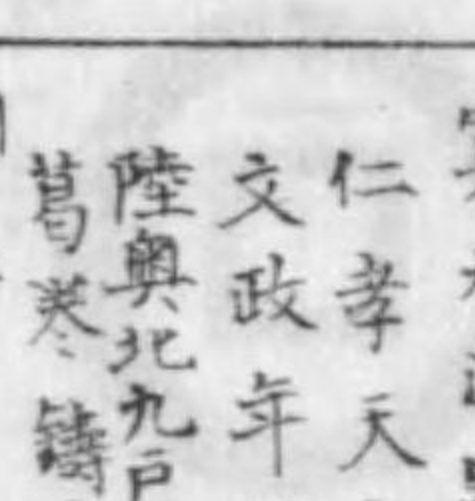 仁孝天
文政年
陸奥北九戸
葛巻鋳